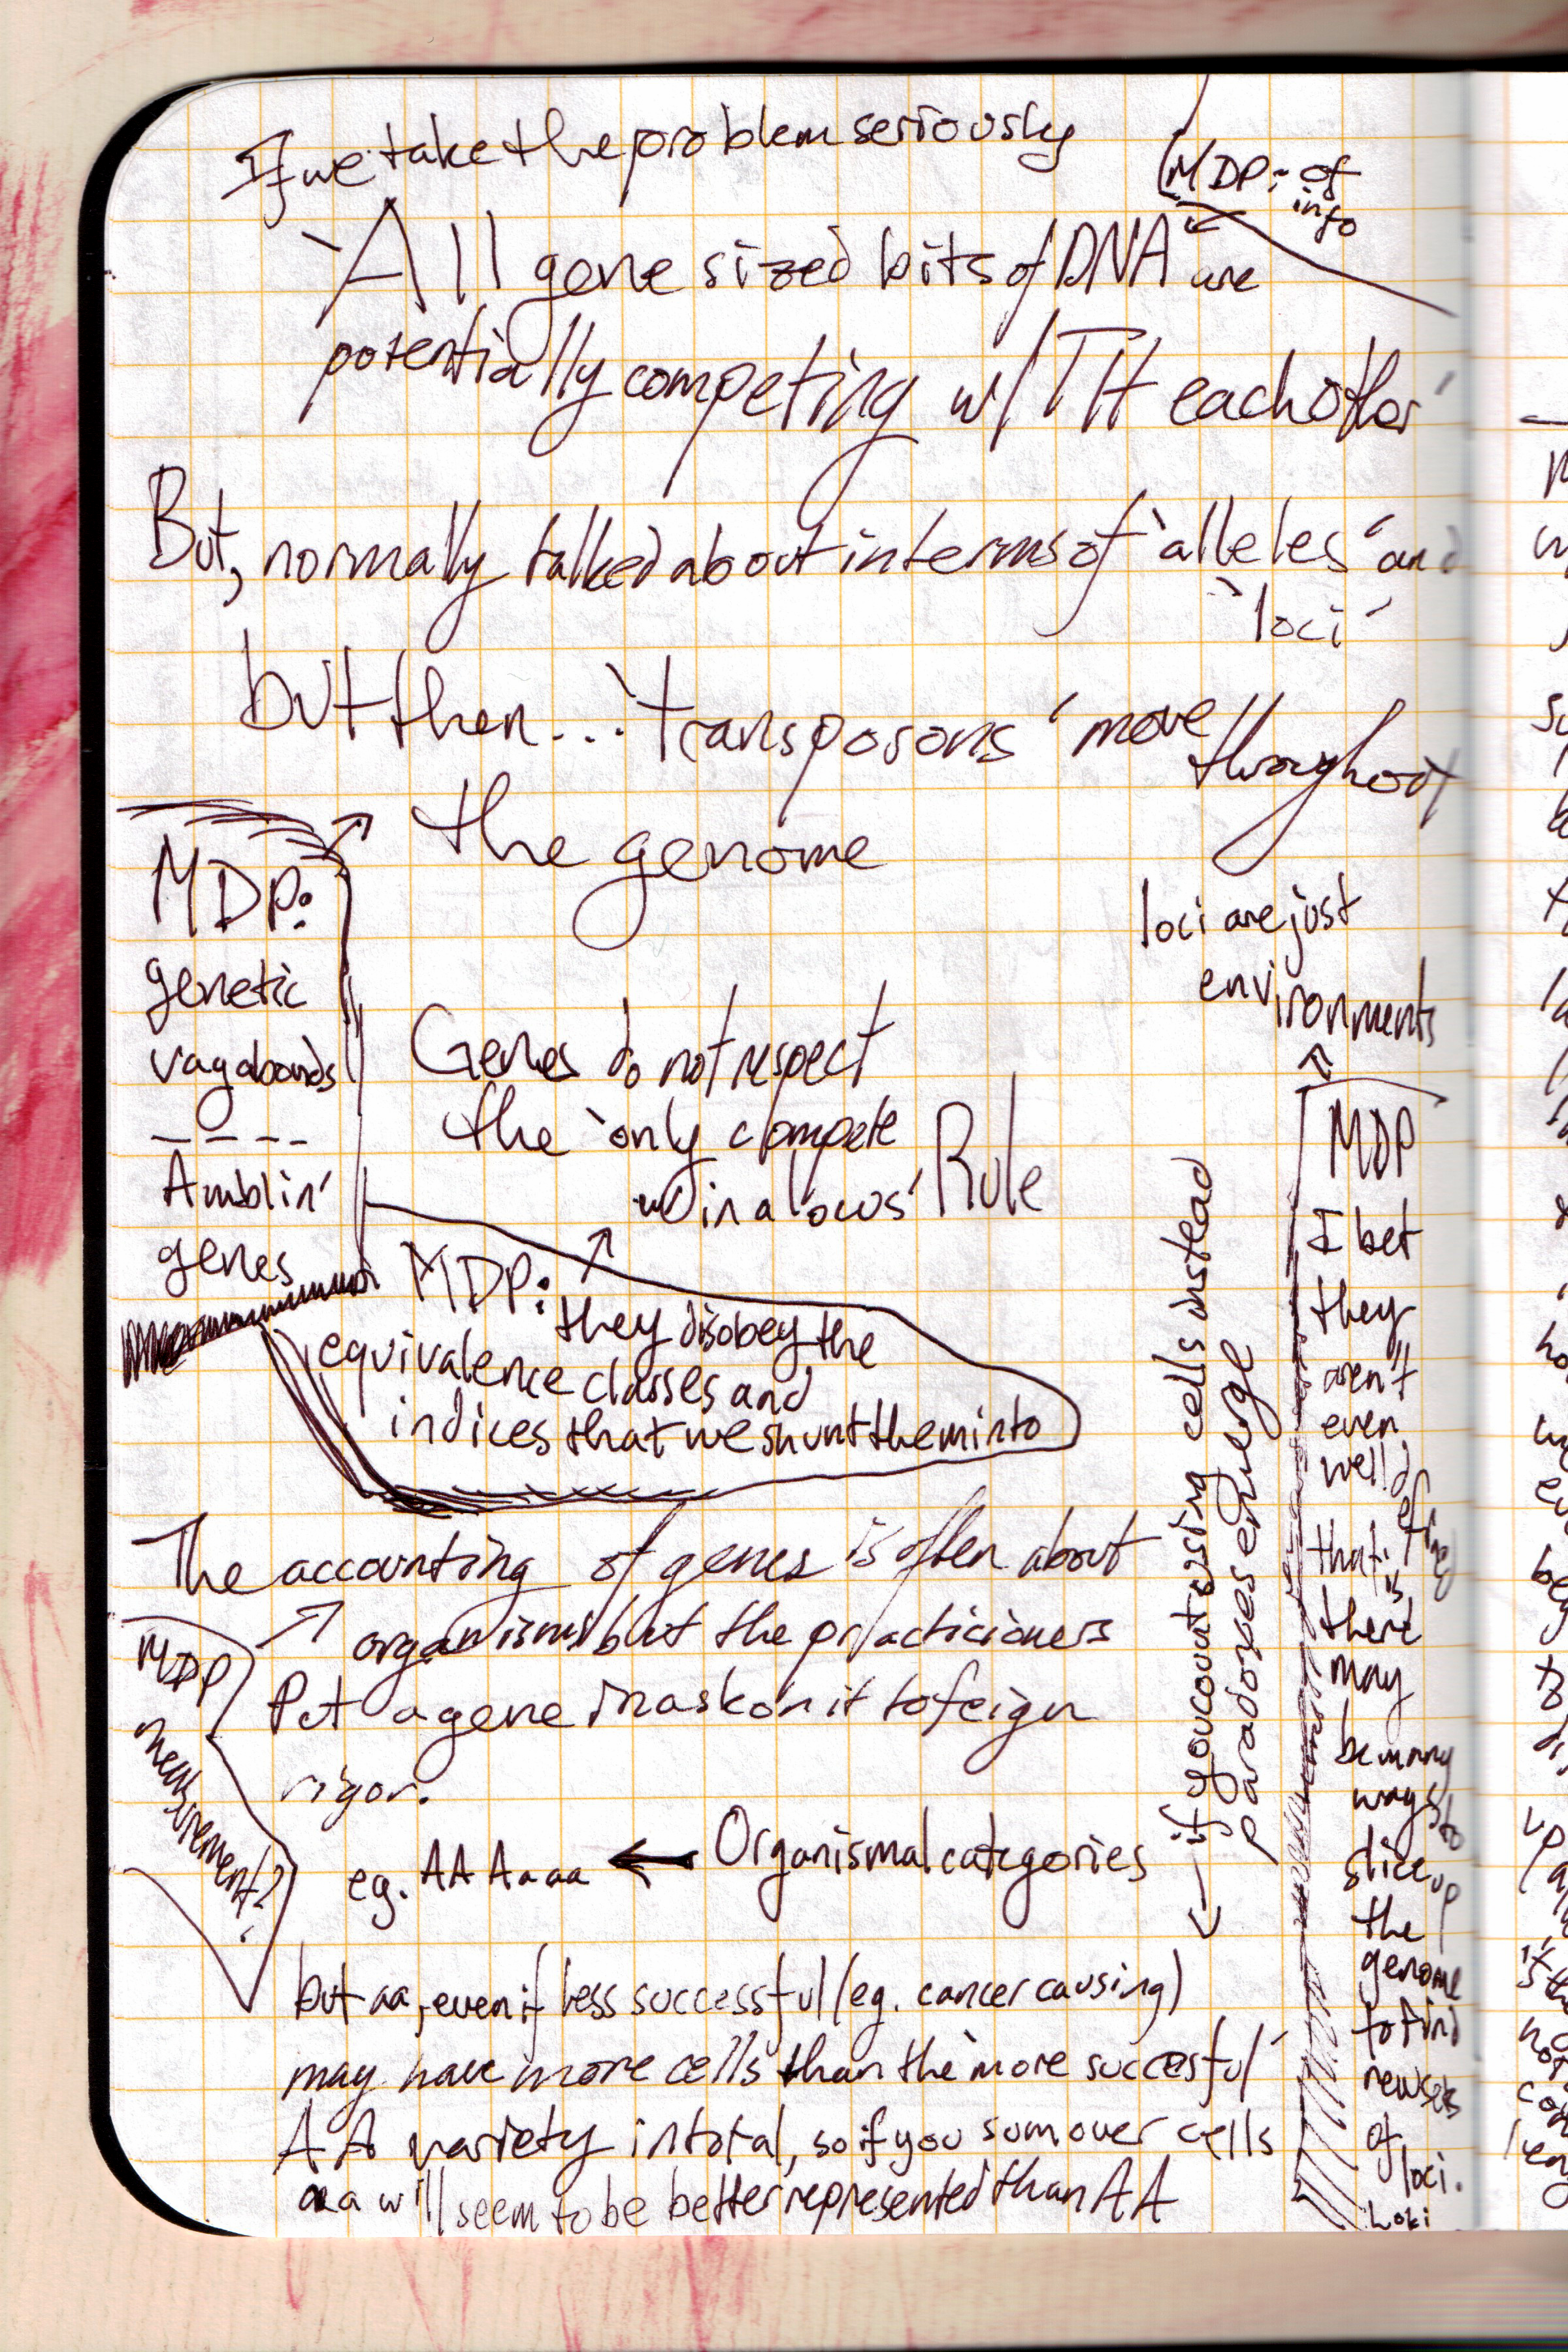 If we take the problem seriously
(MDP: of
info
`All gene sized bits of DNA are
potentially competing w/ITH each other'
But, normally talked about in terms of `alleles' and
`loci'
but then...`transposons' move
throughout
the genome
MDP:
genetic
vagabonds
----
Amblin'
genes
loci are just
environments
Genes do not respect
the `only compete
w/in a locus' Rule
MDP: they disobey the
equivalence classes and
indices that we shunt them into
MDP
I bet
they
aren't
even
well defined
that is
there
may
be many
ways to
slice up
the
genome
to find
new sets
of
loci.
Loki
The accounting of genes is often about
organisms but the practicioners
Put a gene mask on it to feign
rigor.
MDP
measurement?
eg. AA Aa aa ← Organismal categories
if you count using cells instead
paradoxes emerge
but aa, even if less successful (eg. cancer causing)
may have more cells than the `more succesful'
AA variety in total, so if you sum over cells
aa will seem to be better represented than AA